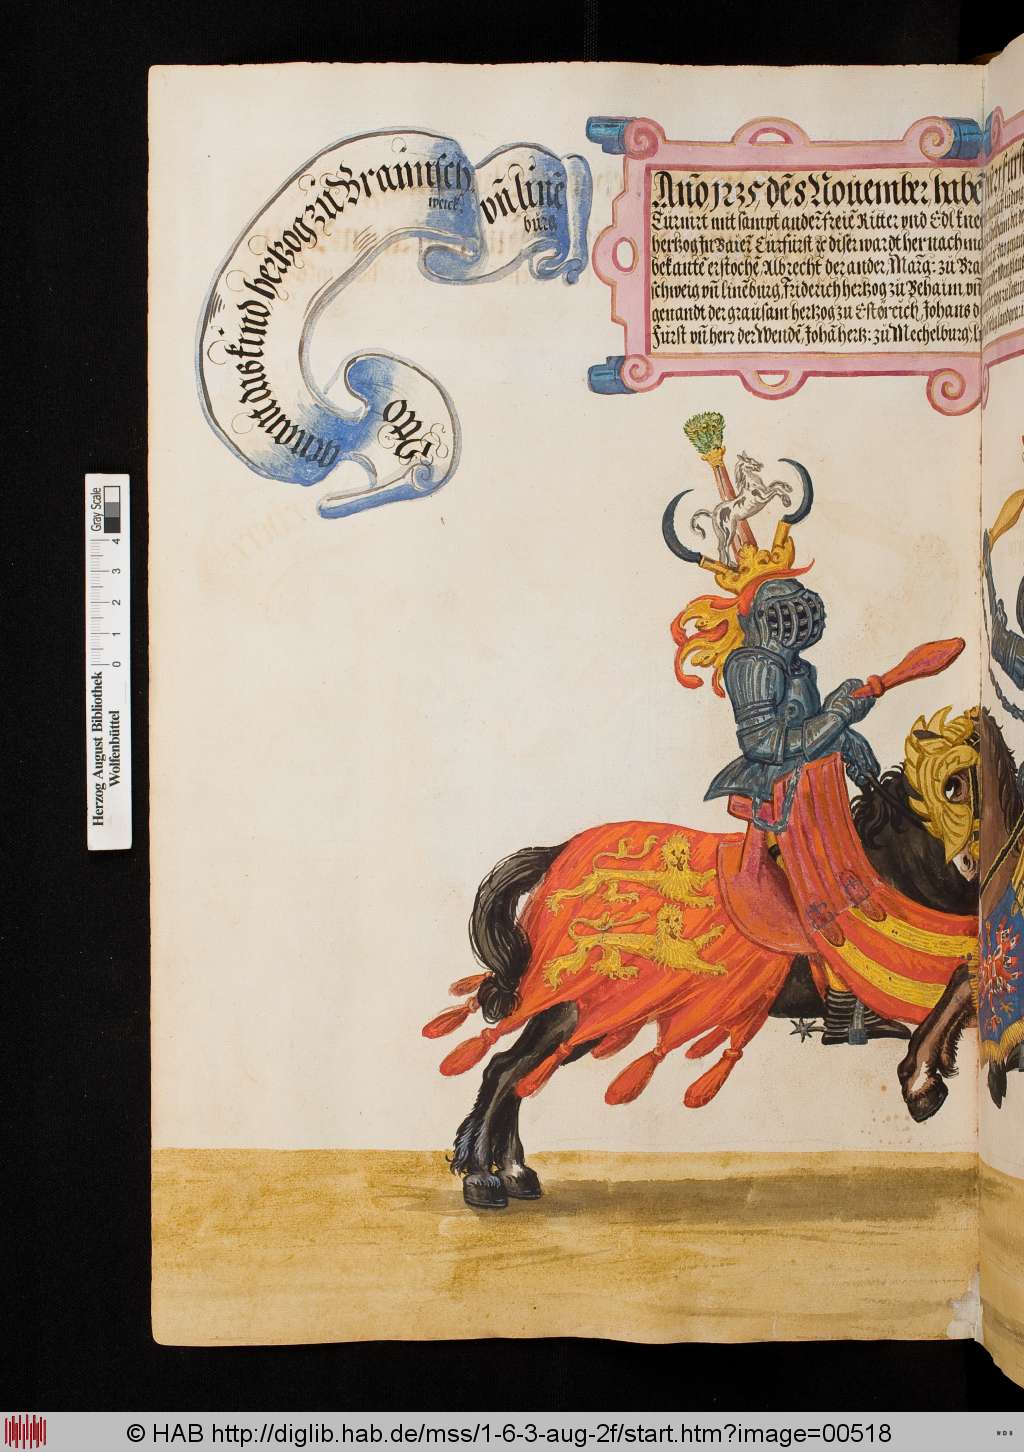 Otto
genant das kind hertzog zu Braunsch
weick
vñ linẽ
burg
Año 1235 dẽ 8 Nouember habẽ
Turnirt mit sampt anderẽ freiẽ Ritter vnd Edl
hertzog in Baiẽn Curfürst diser wardt her nach
bekantẽ erstochẽ, Albrecht der ander, Marg: zu Bra
schweig vñ linẽburg, Friderich hertzog zu Behaim, vñ
genandt der grausam hertzog zu Estorrich, Johans
Fürst vñ herr der Wendẽ, Johã hertz: zu Mechelburg,
Herzog August Bibliothek
Wolfenbüttel
0 1 2 3 4
Gray Scale
© HAB http://diglib.hab.de/mss/1-6-3-aug-2f/start.htm?image=00518